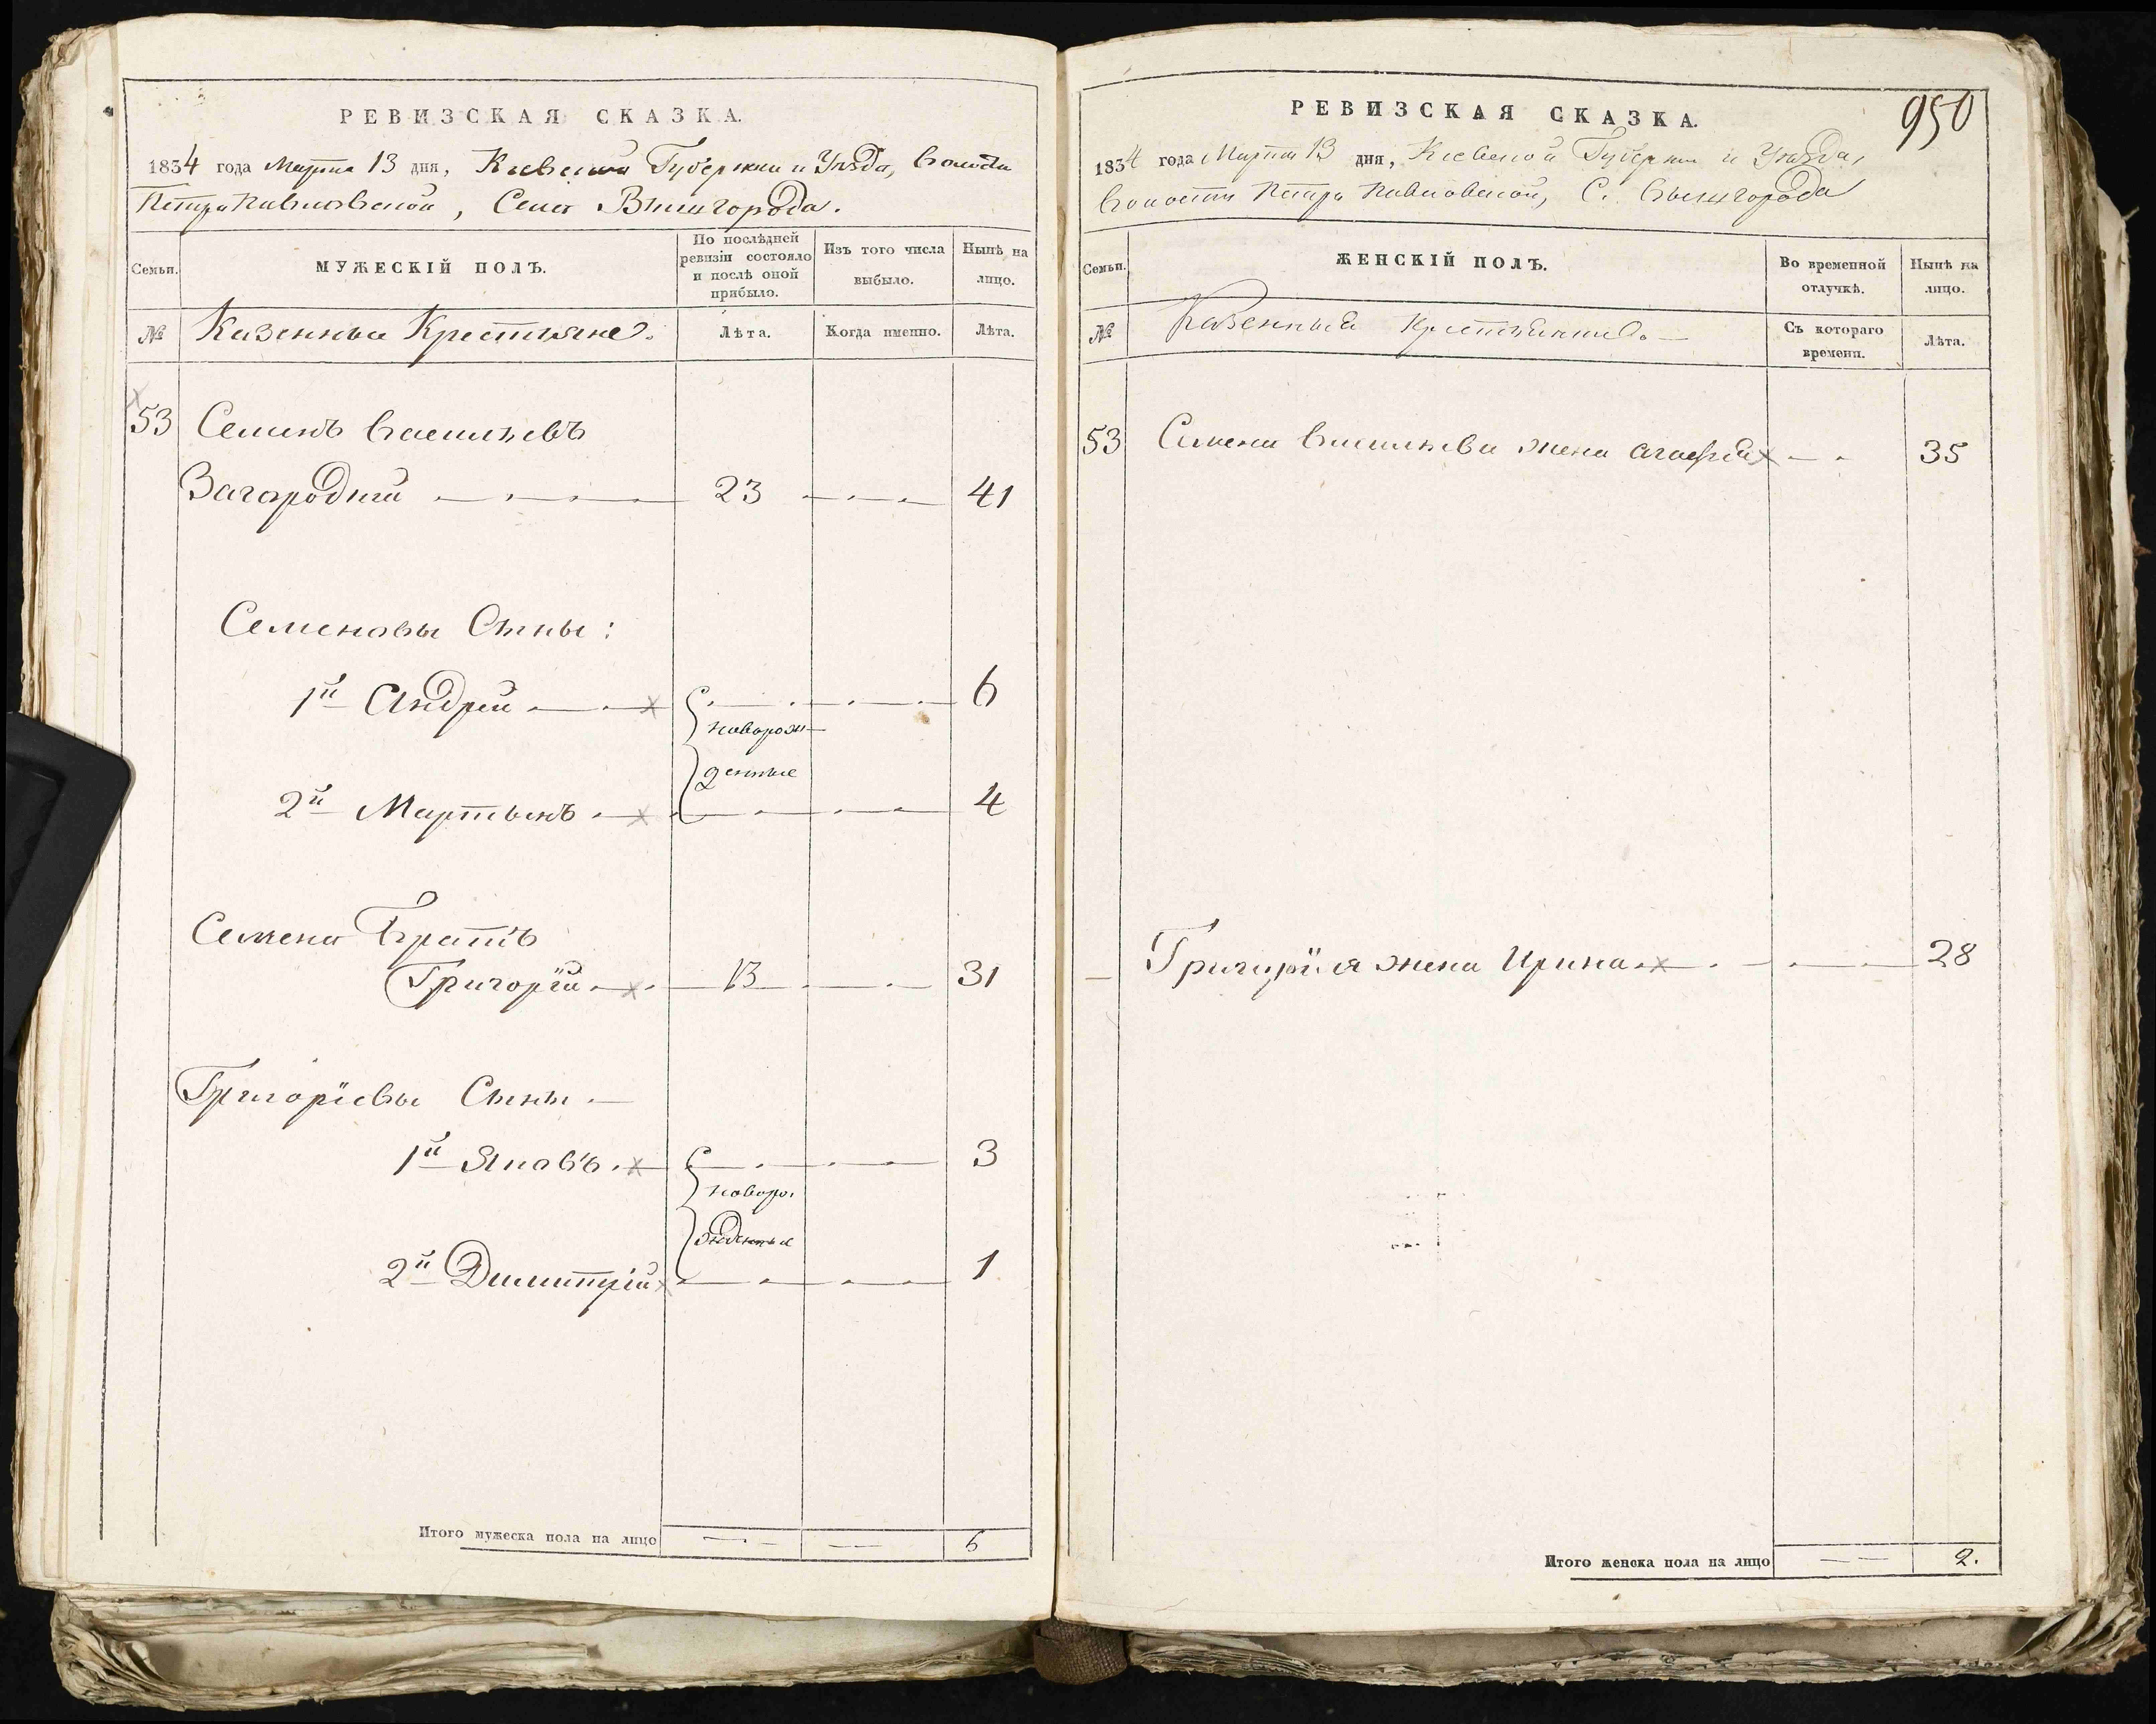 РЕВИЗСКАЯ СКАЗКА.
1834 года Марта 13 дня, Кіевской Губерніи и Уѣзда, Волости
Петропавловской, Села Вышгорода.
Семьи.
МУЖЕСКІЙ ПОЛЪ.
По послѣдней ревизіи состояло и послѣ оной прибыло.
Изъ того числа выбыло.
Нынѣ на лицо.
№
Казенные Крестьяне.
Лѣта.
Когда именно.
Лѣта.
53 Семенъ Васильевъ
Загородній 23 41
Семеновы Сыны:
1й Андрей 6
новорож-
денные
2й Мартынъ 4
Семена Братъ
Григорій 13 31
Григоріевы Сыны
1й Яковъ 3
новоро.
жденные
2й Димитрій 1
Итого мужеска пола на лицо 6
950
РЕВИЗСКАЯ СКАЗКА.
1834 года Марта 13 дня, Кіевской Губерніи и Уѣзда,
Волости Петропавловской, С. Вышгорода
Семьи.
ЖЕНСКІЙ ПОЛЪ.
Во временной отлучкѣ.
Нынѣ на лицо.
№
Казенныя Крестьянки
Съ котораго времени.
Лѣта.
53 Семена Васильева жена Агафія 35
Григорія жена Ирина 28
Итого женска пола на лицо 2.